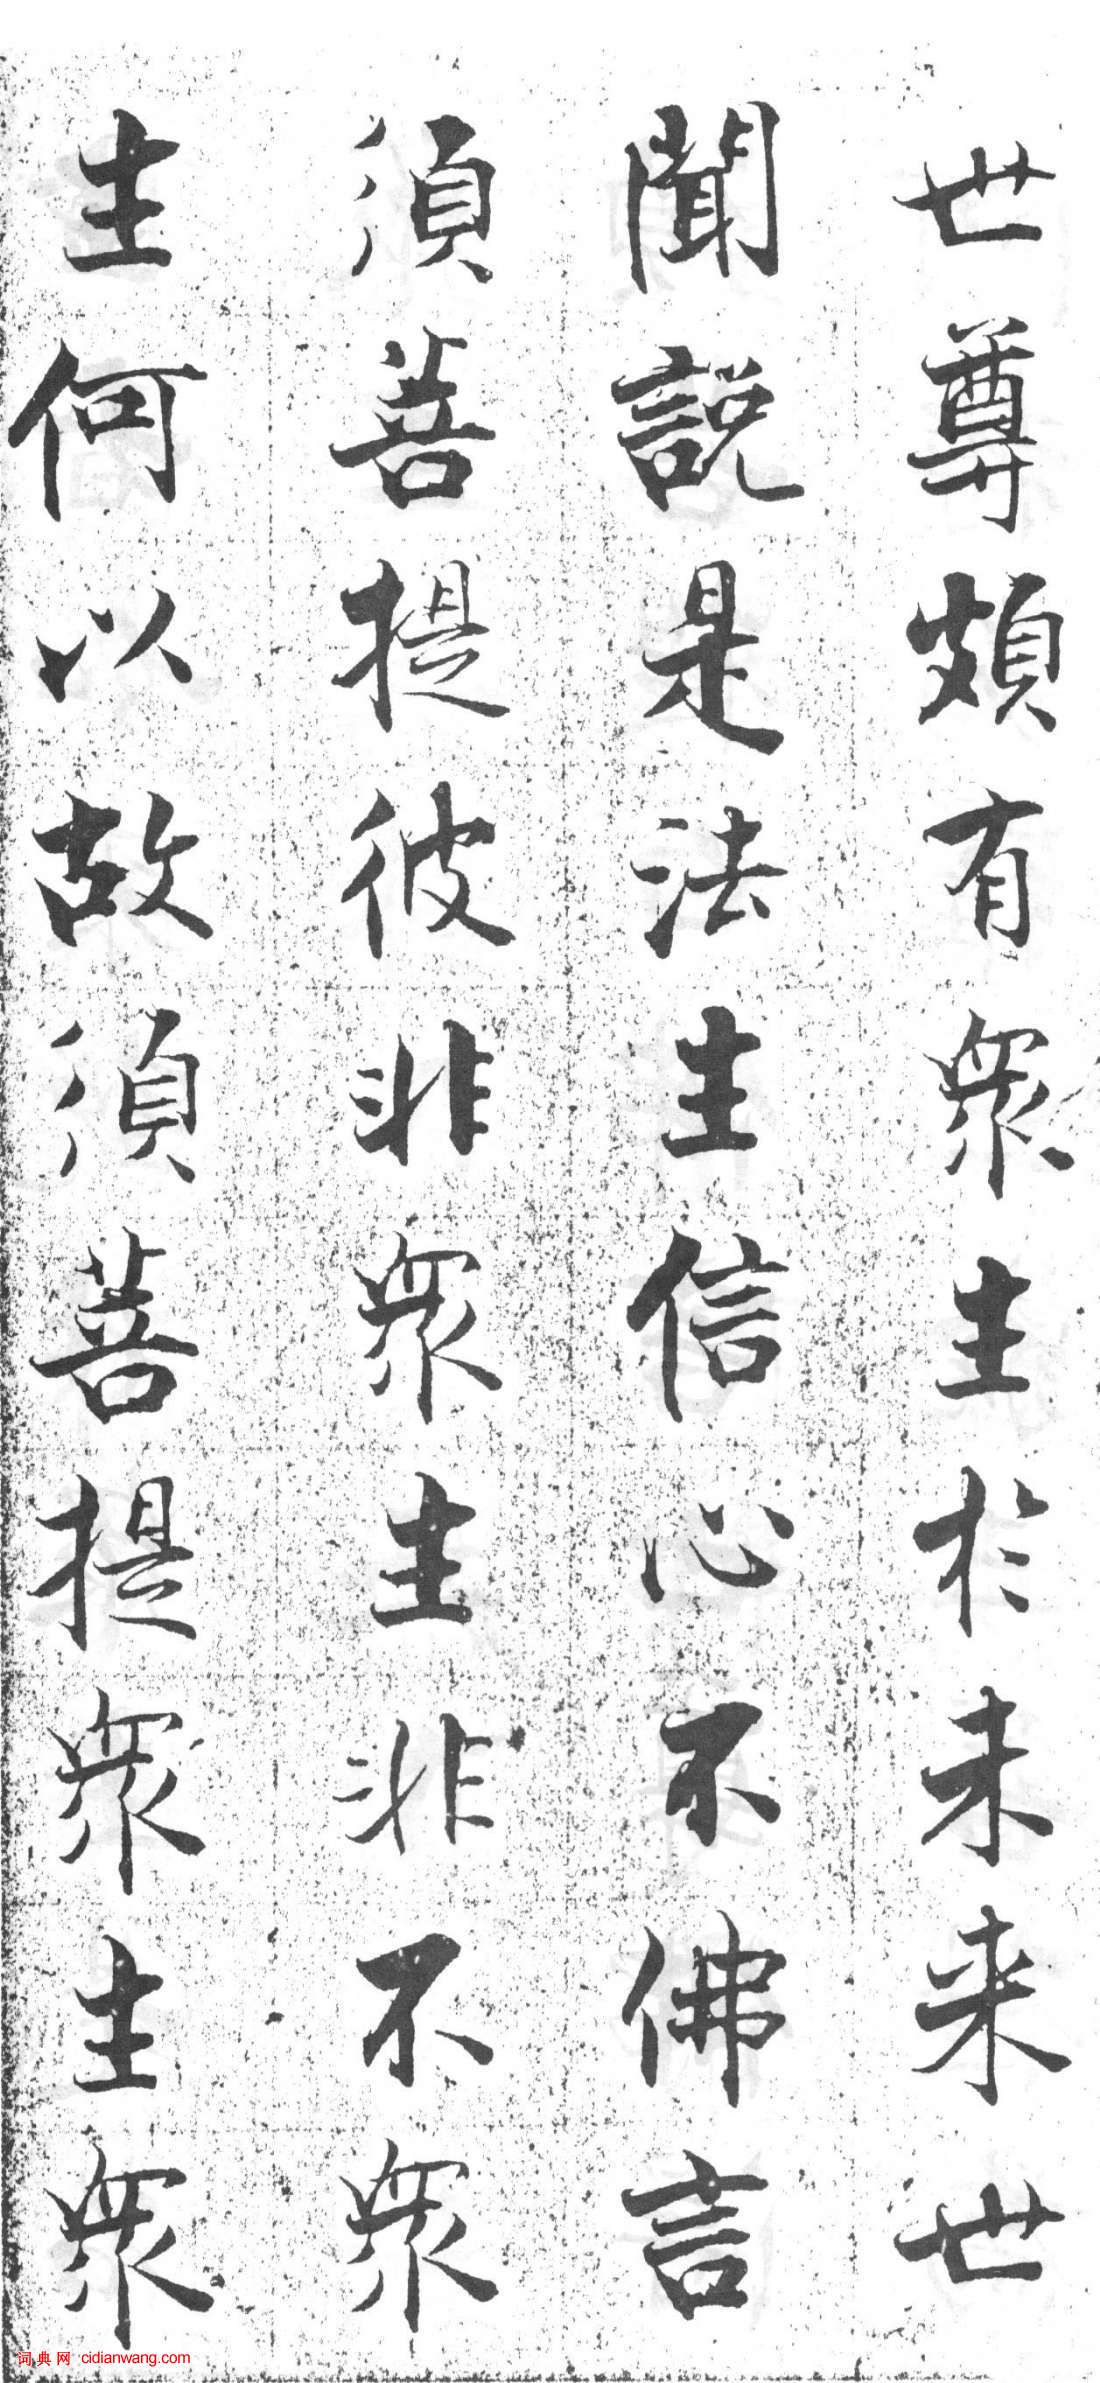 世尊頗有眾生於未来世
聞説是法生信心不佛言
須菩提彼非眾生非不眾
生何以故須菩提眾生眾
词典网 cidianwang.com